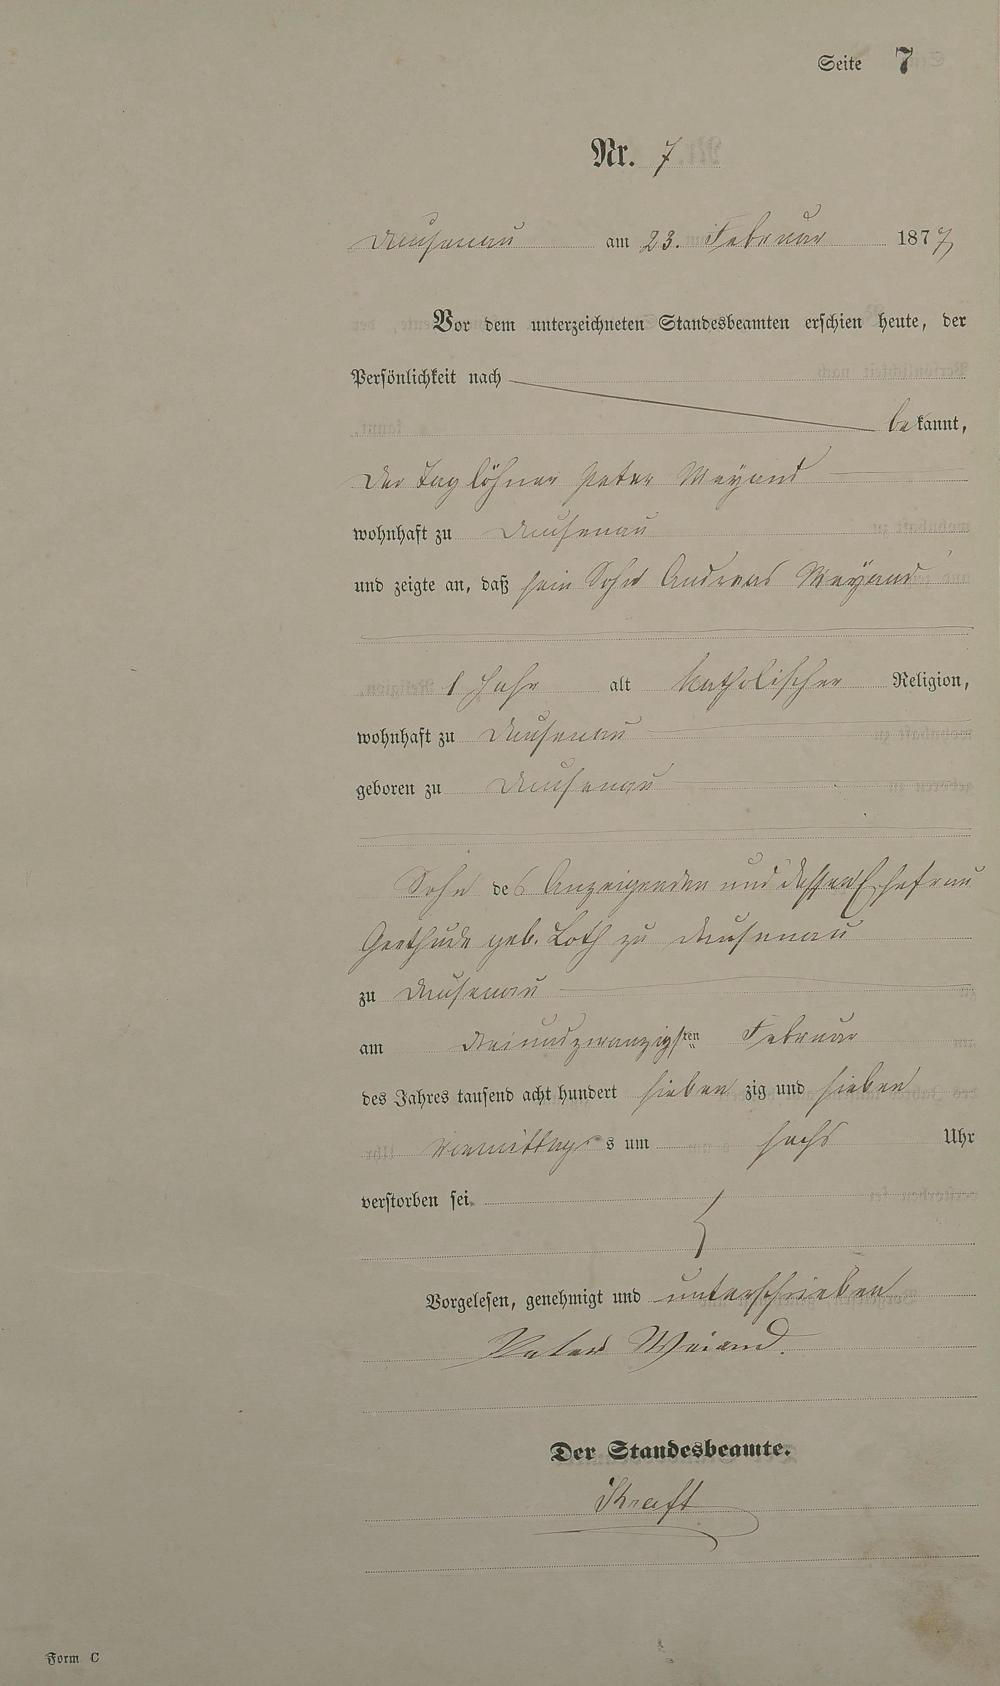 Seite 7
Nr. 7
Dausenau am 23. Februar 1877
Vor dem unterzeichneten Standesbeamten erschien heute, der
Persönlichkeit nach
bekannt,
der Taglöhner Peter Weyand
wohnhaft zu Dausenau
und zeigte an, daß sein Sohn Andreas Weyand
1 Jahr alt katholischer Religion,
wohnhaft zu Dausenau
geboren zu Dausenau
Sohn des Anzeigenden und dessen Ehefrau
Gerthude geb. Loth zu Dausenau
zu Dausenau
am dreiundzwanzigsten Februar
des Jahres tausend acht hundert siebenzig und sieben
Vormittags um sechs Uhr
verstorben sei.
Vorgelesen, genehmigt und unterschrieben
Peter Weiand.
Der Standesbeamte.
Kraft
Form C